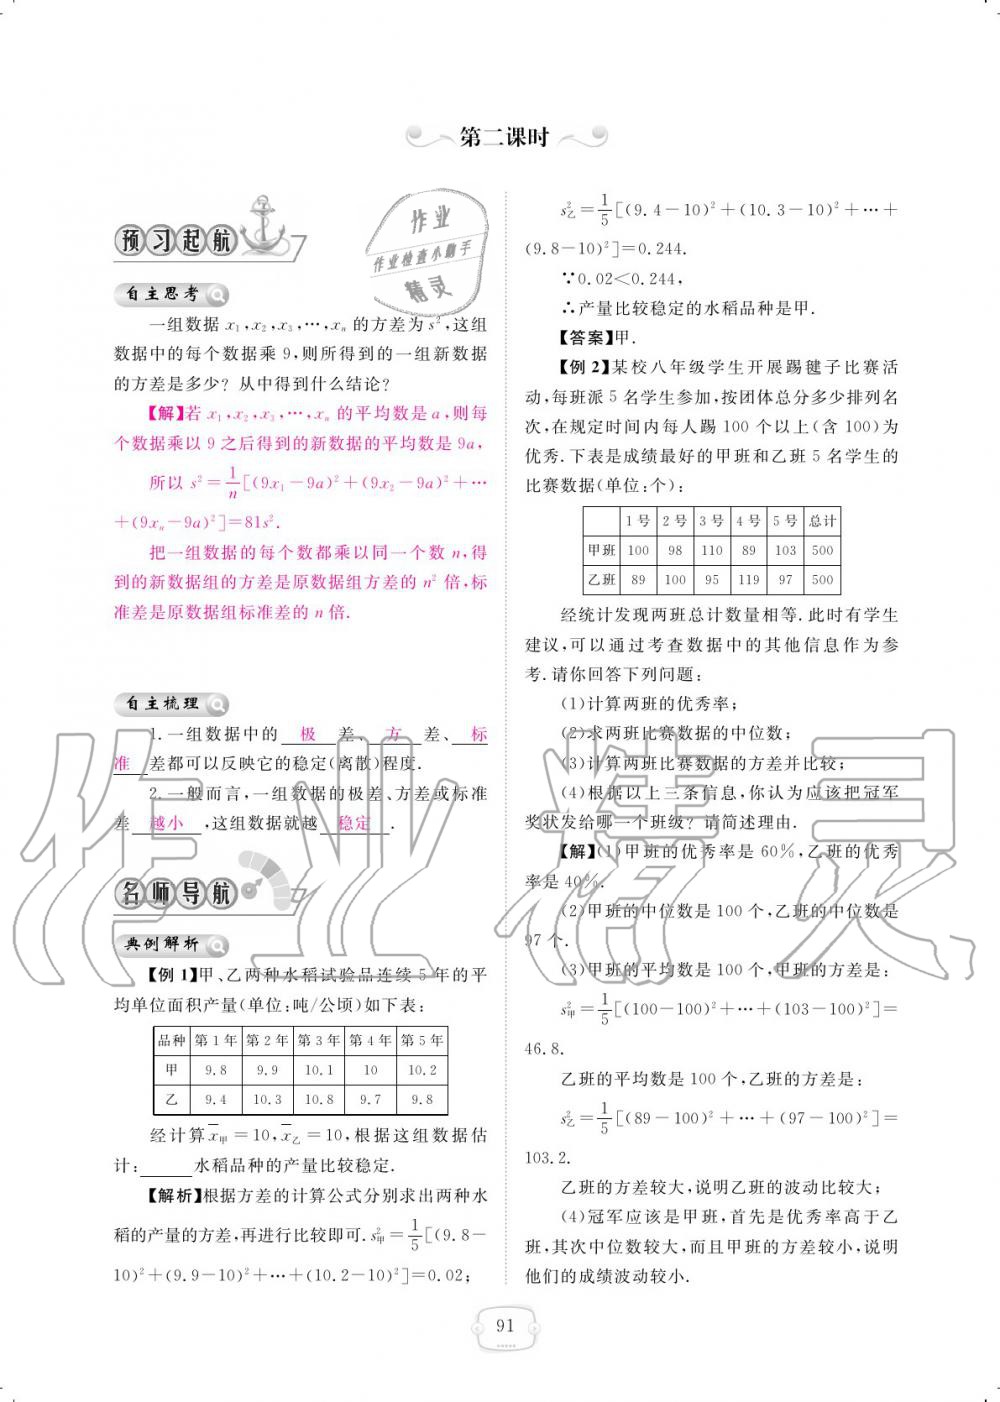 第二课时
预习起航
自主思考
一组数据 x₁,x₂,x₃,…,xₙ 的方差为 s²,这组
数据中的每个数据乘 9,则所得到的一组新数据
的方差是多少？从中得到什么结论？
【解】若 x₁,x₂,x₃,…,xₙ 的平均数是 a,则每
个数据乘以 9 之后得到的新数据的平均数是 9a,
所以 s²=1/n[(9x₁－9a)²＋(9x₂－9a)²＋…
＋(9xₙ－9a)²]=81s².
把一组数据的每个数都乘以同一个数 n,得
到的新数据组的方差是原数据组方差的 n² 倍,标
准差是原数据组标准差的 n 倍.
自主梳理
1.一组数据中的 极 差、 方 差、 标
准 差都可以反映它的稳定(离散)程度.
2.一般而言,一组数据的极差、方差或标准
差 越小 ,这组数据就越 稳定 .
名师导航
典例解析
【例 1】甲、乙两种水稻试验品连续 5 年的平
均单位面积产量(单位:吨/公顷)如下表:
品种 第 1 年 第 2 年 第 3 年 第 4 年 第 5 年
甲 9.8 9.9 10.1 10 10.2
乙 9.4 10.3 10.8 9.7 9.8
经计算 x̄甲＝10,x̄乙＝10,根据这组数据估
计:______水稻品种的产量比较稳定.
【解析】根据方差的计算公式分别求出两种水
稻的产量的方差,再进行比较即可.s²甲＝1/5[(9.8－
10)²＋(9.9－10)²＋…＋(10.2－10)²]＝0.02;
s²乙＝1/5[(9.4－10)²＋(10.3－10)²＋…＋
(9.8－10)²]＝0.244.
∵0.02＜0.244,
∴产量比较稳定的水稻品种是甲.
【答案】甲.
【例 2】某校八年级学生开展踢毽子比赛活
动,每班派 5 名学生参加,按团体总分多少排列名
次,在规定时间内每人踢 100 个以上(含 100)为
优秀.下表是成绩最好的甲班和乙班 5 名学生的
比赛数据(单位:个):
1 号 2 号 3 号 4 号 5 号 总计
甲班 100 98 110 89 103 500
乙班 89 100 95 119 97 500
经统计发现两班总计数量相等.此时有学生
建议,可以通过考查数据中的其他信息作为参
考.请你回答下列问题:
(1)计算两班的优秀率;
(2)求两班比赛数据的中位数;
(3)计算两班比赛数据的方差并比较;
(4)根据以上三条信息,你认为应该把冠军
奖状发给哪一个班级？请简述理由.
【解】(1)甲班的优秀率是 60%,乙班的优秀
率是 40%.
(2)甲班的中位数是 100 个,乙班的中位数是
97 个.
(3)甲班的平均数是 100 个,甲班的方差是:
s²甲＝1/5[(100－100)²＋…＋(103－100)²]＝
46.8.
乙班的平均数是 100 个,乙班的方差是:
s²乙＝1/5[(89－100)²＋…＋(97－100)²]＝
103.2.
乙班的方差较大,说明乙班的波动比较大;
(4)冠军应该是甲班,首先是优秀率高于乙
班,其次中位数较大,而且甲班的方差较小,说明
他们的成绩波动较小.
91
作业
作业检查小助手
精灵
作业精灵